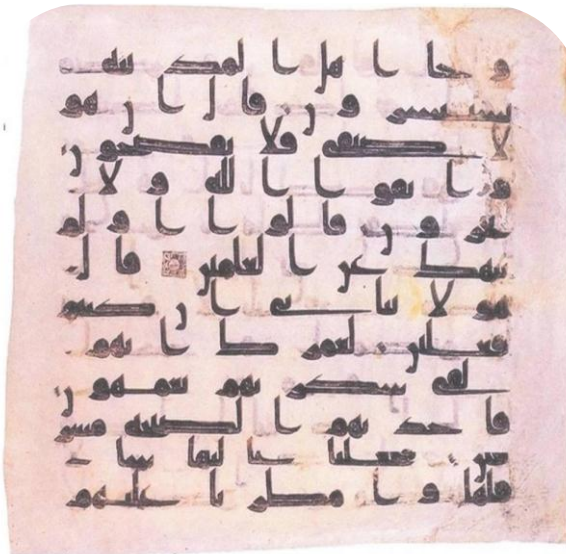 وجا اهل المدينه
يستبشرون قال ان هو
لا ضيفي فلا تفضحون
واتقوا الله ولا
تخزون قالوا اولم
ننهك عن العلمين قال
هولا بناتي ان كنتم
فعلين لعمرك انهم
لفي سكرتهم يعمهون
فاخذتهم الصيحه مشر
قين فجعلنا عليها سا
فلها وامطرنا عليهم